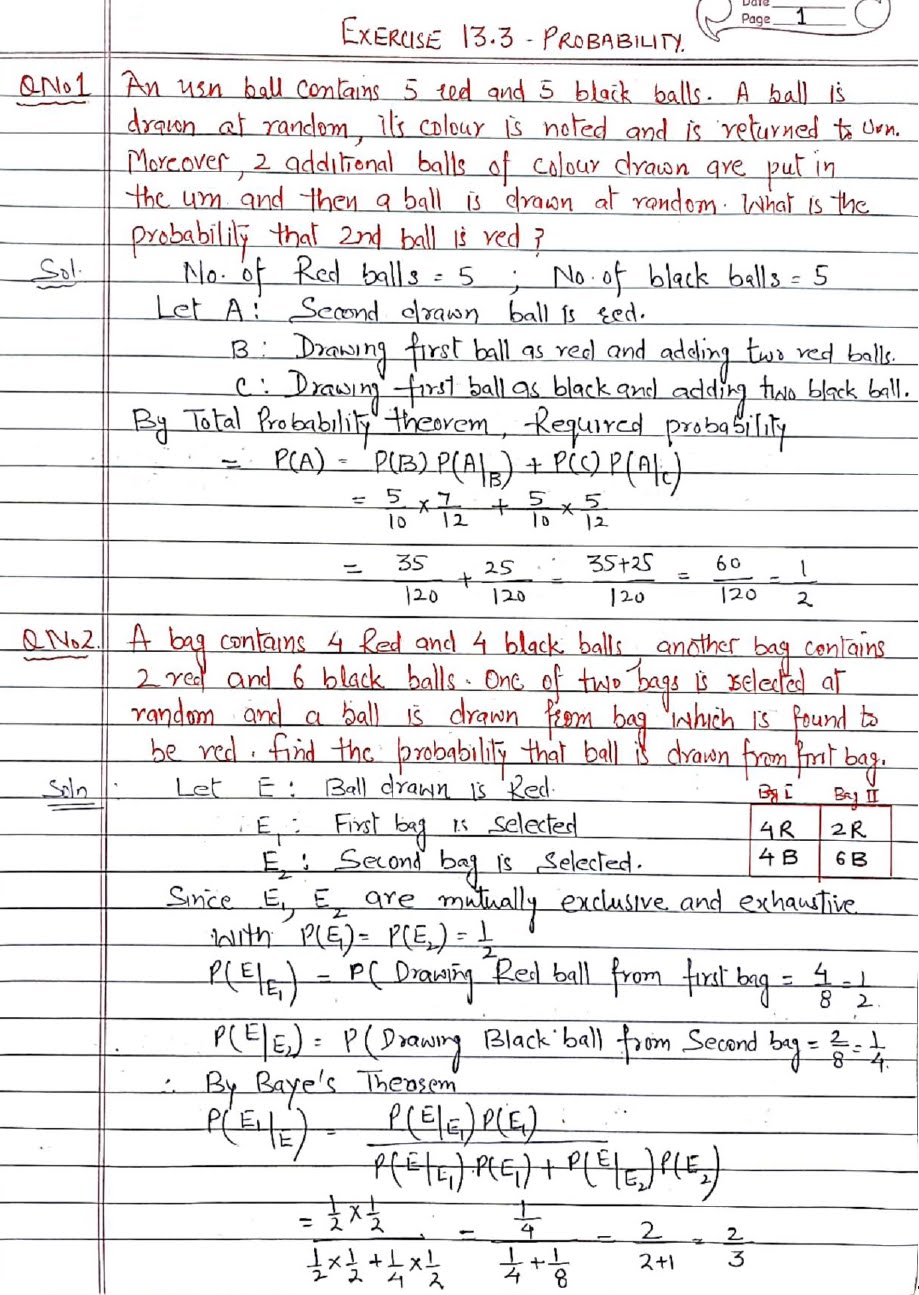 Date
Page 1
EXERCISE 13.3 - PROBABILITY.
Q No 1 An usn ball contains 5 red and 5 black balls. A ball is
drawn at random, it's colour is noted and is returned to Urn.
Moreover, 2 additional balls of colour drawn are put in
the urn and then a ball is drawn at random. What is the
probability that 2nd ball is red ?
Sol. No. of Red balls = 5 ; No. of black balls = 5
Let A : Second drawn ball is red.
B : Drawing first ball as red and adding two red balls.
C : Drawing first ball as black and adding two black ball.
By Total Probability theorem, Required probability
= P(A) = P(B) P(A|B) + P(C) P(A|C)
= 5/10 × 7/12 + 5/10 × 5/12
= 35/120 + 25/120 = 35+25/120 = 60/120 = 1/2
Q No 2. A bag contains 4 Red and 4 black balls, another bag contains
2 red and 6 black balls. One of two bags is selected at
random and a ball is drawn from bag which is found to
be red. find the probability that ball is drawn from first bag.
Soln : Let E : Ball drawn is Red.
Bag I Bag II
E₁ : First bag is selected
4R 2R
E₂ : Second bag is selected.
4B 6B
Since E₁, E₂ are mutually exclusive and exhaustive
with P(E₁) = P(E₂) = 1/2
P(E|E₁) = P( Drawing Red ball from first bag = 4/8 = 1/2.
P(E|E₂) = P( Drawing Black ball from Second bag = 2/8 = 1/4.
∴ By Baye's Theorem
P(E₁|E) = P(E|E₁) P(E₁) / P(E|E₁).P(E₁) + P(E|E₂) P(E₂)
= 1/2 × 1/2 / 1/2 × 1/2 + 1/4 × 1/2 = 1/4 / 1/4 + 1/8 = 2/2+1 = 2/3